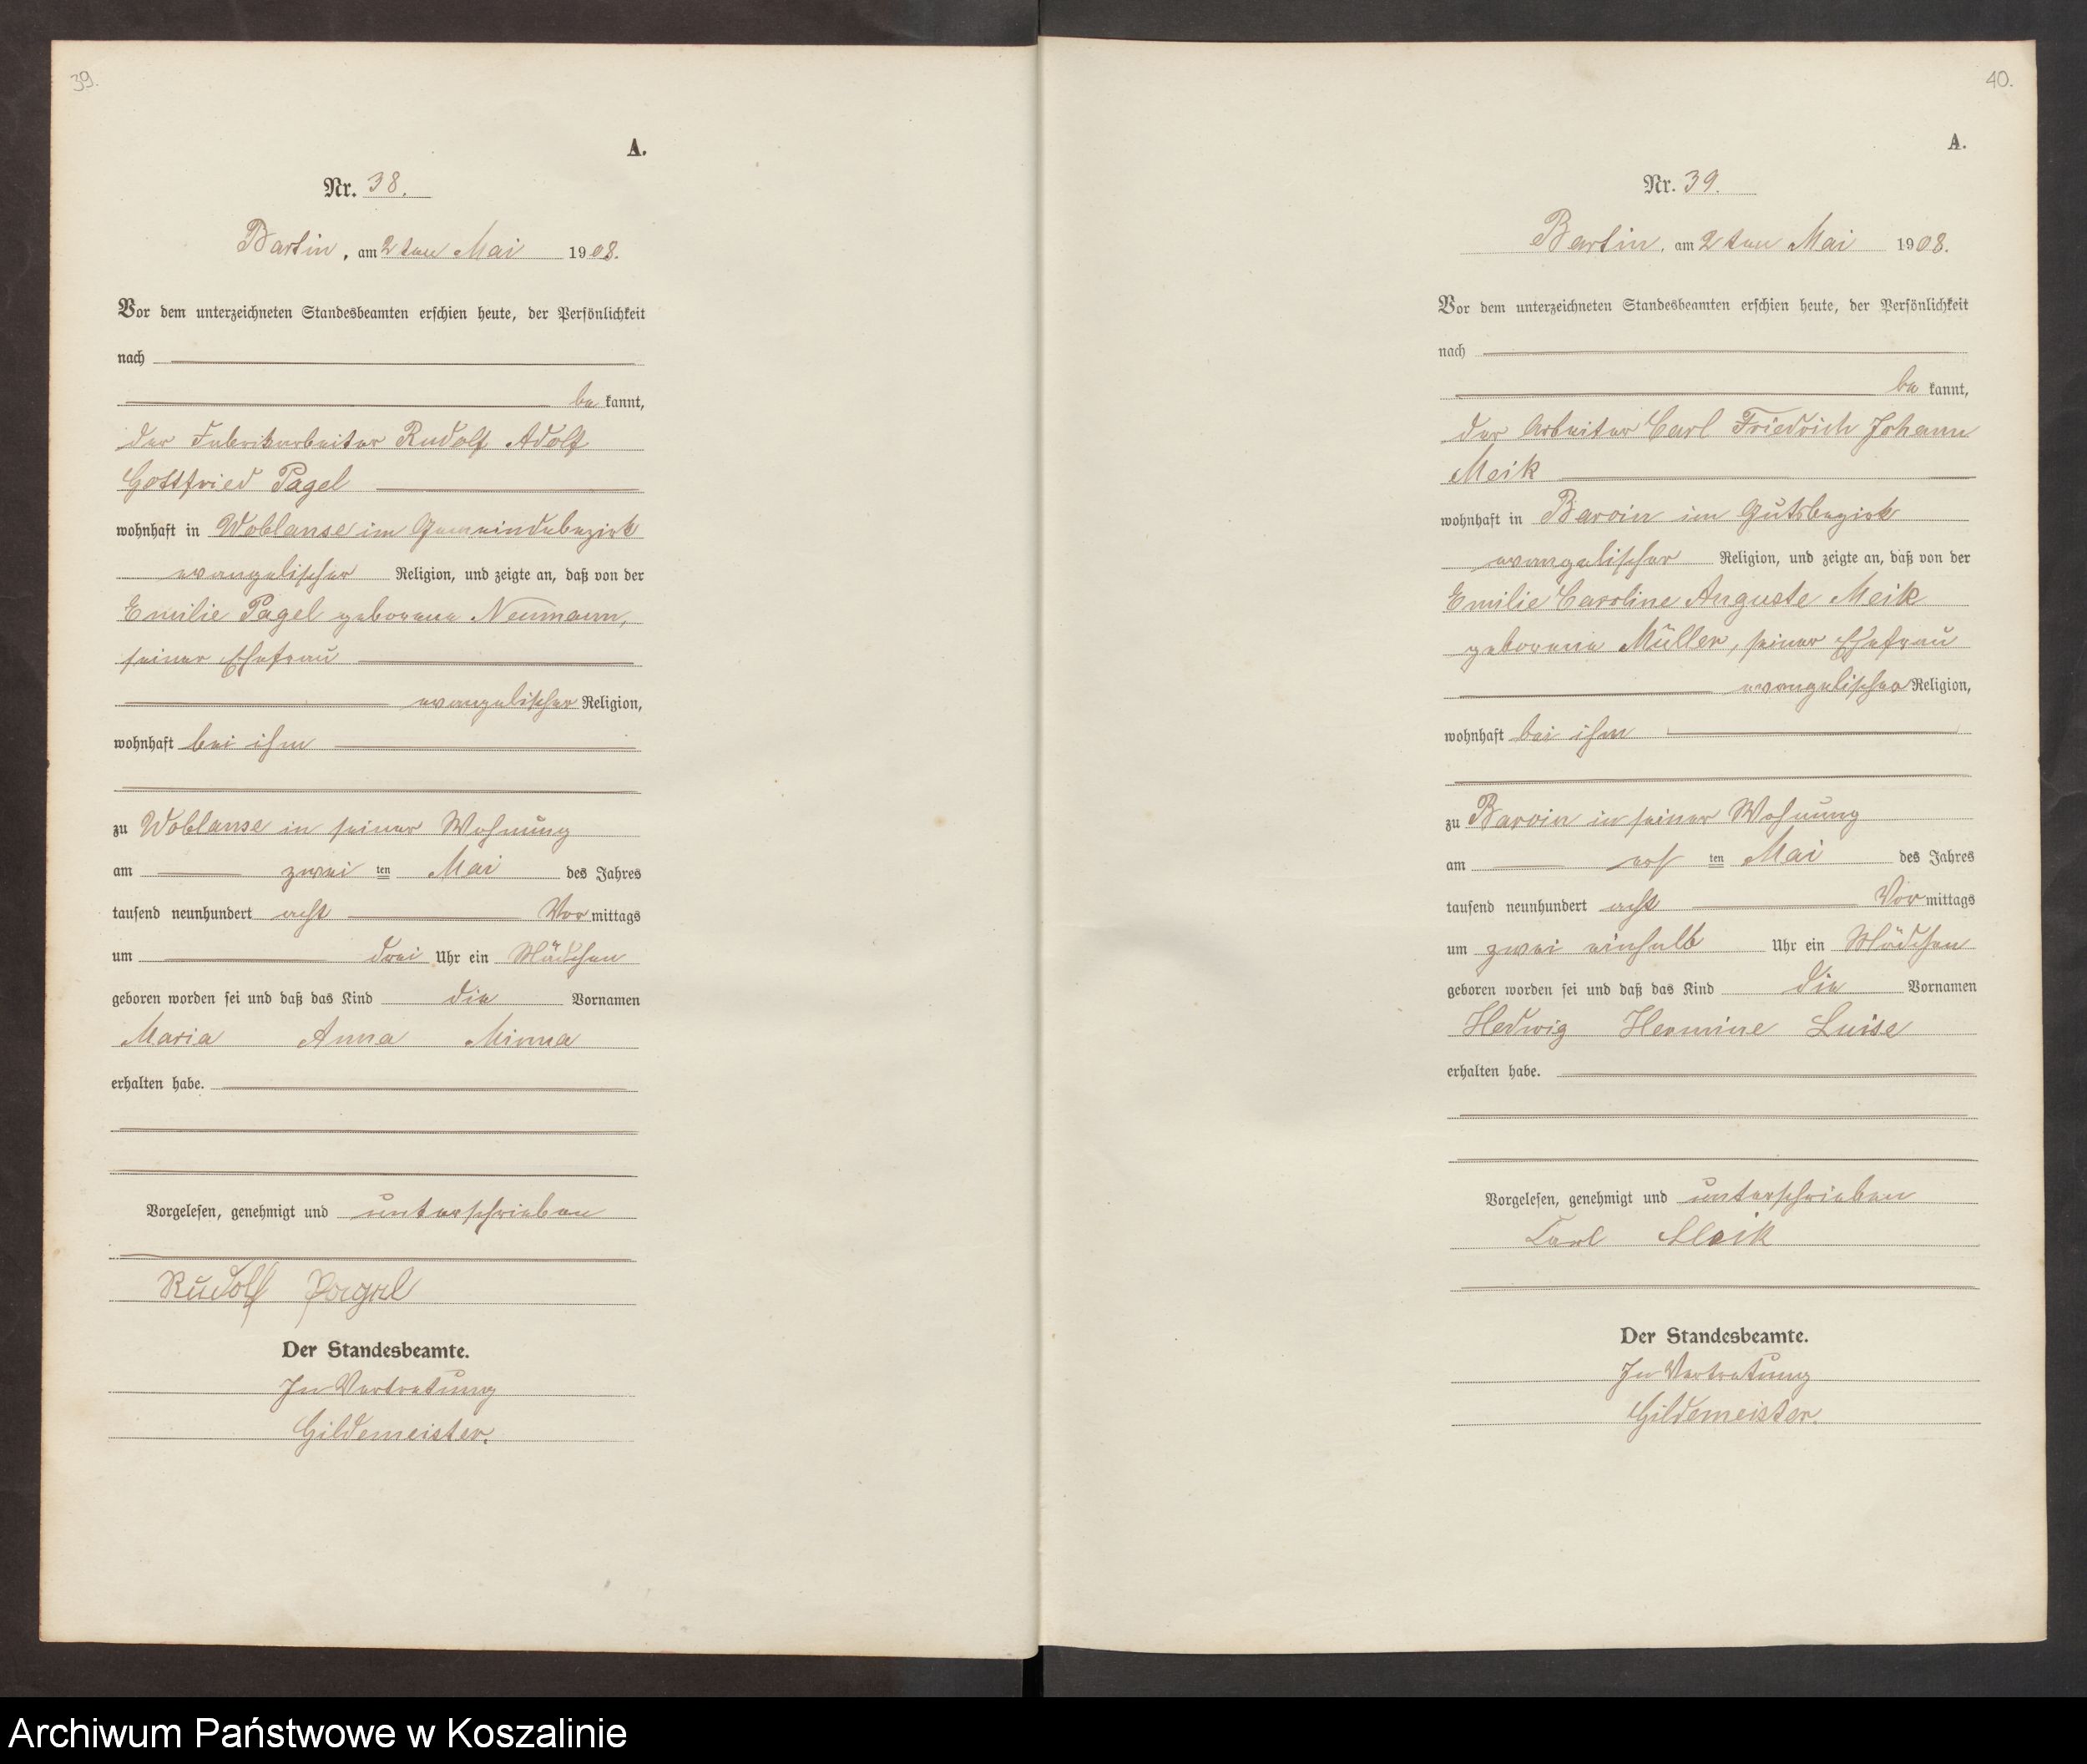 39.
A.
Nr. 38.
Bartin, am 2ten Mai 1908.
Vor dem unterzeichneten Standesbeamten erschien heute, der Persönlichkeit
nach
bekannt,
der Fabrikarbeiter Rudolf Adolf
Gottfried Pagel
wohnhaft in Woblanse im Gemeindebezirk
evangelischer Religion, und zeigte an, daß von der
Emilie Pagel geborene Neumann,
seiner Ehefrau
evangelischer Religion,
wohnhaft bei ihm
zu Woblanse in seiner Wohnung
am zwei ten Mai des Jahres
tausend neunhundert acht Vormittags
um drei Uhr ein Mädchen
geboren worden sei und daß das Kind die Vornamen
Maria Anna Minna
erhalten habe.
Vorgelesen, genehmigt und unterschrieben
Rudolf Pagel
Der Standesbeamte.
In Vertretung
Gildemeister.
40.
A.
Nr. 39.
Bartin, am 2ten Mai 1908.
Vor dem unterzeichneten Standesbeamten erschien heute, der Persönlichkeit
nach
bekannt,
der Arbeiter Carl Friedrich Johann
Meik
wohnhaft in Barvin im Gutsbezirk
evangelischer Religion, und zeigte an, daß von der
Emilie Caroline Auguste Meik
geborene Müller, seiner Ehefrau
evangelischer Religion,
wohnhaft bei ihm
zu Barvin in seiner Wohnung
am ers ten Mai des Jahres
tausend neunhundert acht Vormittags
um zwei einhalb Uhr ein Mädchen
geboren worden sei und daß das Kind die Vornamen
Hedwig Hermine Luise
erhalten habe.
Vorgelesen, genehmigt und unterschrieben
Carl Meik
Der Standesbeamte.
In Vertretung
Gildemeister.
Archiwum Państwowe w Koszalinie